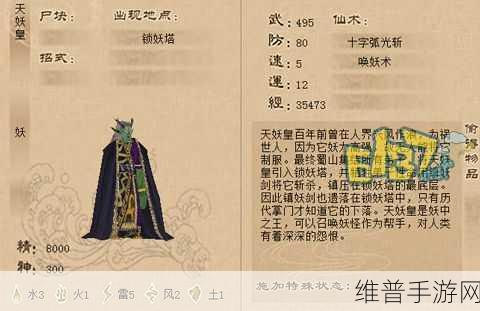 天妖皇
尸块：
出现地点：
锁妖塔
招式：
妖
精：8000
神：300
水3 火1 雷5 风2 土1
武：495 仙术：
防：80 十字弧光斩
速：5 唤妖术
運：12
經：35473
偷得物品
天妖皇百年前曾在人界
为祸
世人，因为它妖力高强
将它
制服。最终蜀山集
天妖
皇引入锁妖塔，并
妖
剑将它斩杀，镇压在锁妖塔的最底层。
因此镇妖剑也遗落在锁妖塔中，只有历
代掌门才知道它的下落。天妖皇是妖中
之王，可以召唤妖怪作为帮手，对人类
有着深深的怨恨。
施加特殊状态：
维普手游网